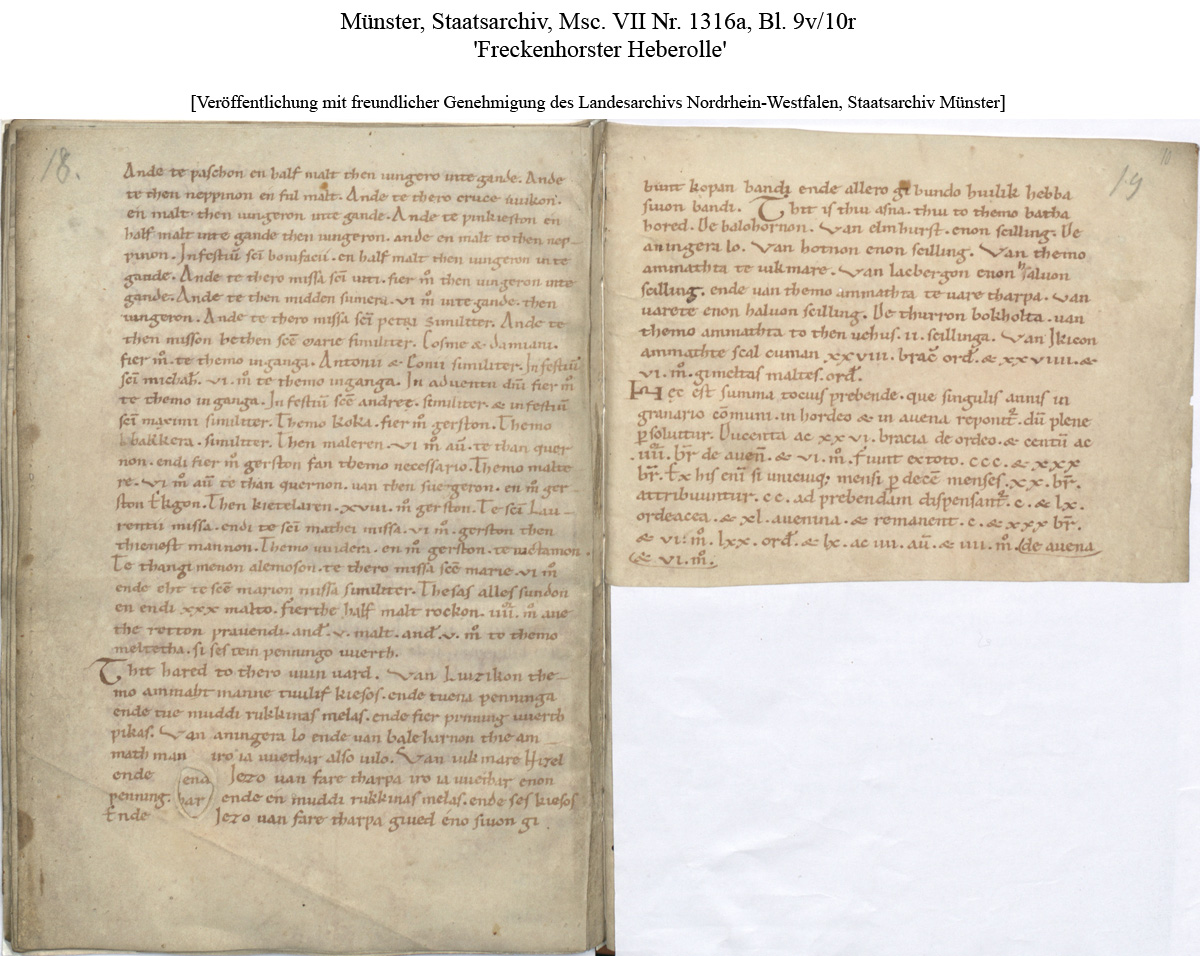 Münster, Staatsarchiv, Msc. VII Nr. 1316a, Bl. 9v/10r
'Freckenhorster Heberolle'
[Veröffentlichung mit freundlicher Genehmigung des Landesarchivs Nordrhein-Westfalen, Staatsarchiv Münster]
18.
Ande te paschon en half malt then iungero inte gande. Ande
te then neppinon en ful malt. Ande te thero cruce uuikon.
en malt. then iungeron inte gande. Ande te pinkieston en
half malt inte gande then iungeron. ande en malt to then nep-
pinon. In festiū scī bonifacii. en half malt then iungeron inte
gande. Ande te thero missa scī uiti. fier m̊ then iungeron inte
gande. Ande te then midden sumera. vi m̊ inte gande. then
iungeron. Ande te thero missa scī petri similiter. Ande te
then misson bethen scē marie similiter. Cosme & damiani.
fier m̊. te themo inganga. Antonii & Conii similiter. In festiū
scī michah̄. vi. m̊ te themo inganga. In adventu dn̄i fier m̊
te themo inganga. In festiū scē andreę. similiter. & in festiū
scī maximi similiter. Themo koka. fier m̊ gerston. Themo
bakkera. similiter. Then maleren. vi m̊ au̅. te than quer
non. endi fier m̊ gerston fan themo necessario. Themo malte
re. vi m̊ au̅ te than quernon. van then suegeron. en m̊ ger
ston Ekgon. Then kietelaren. xviii. m̊ gerston. Te scī Lau-
rentii missa. endi te scī mathei missa. vi m̊. gerston then
thienost mannon. Themo uuidera. en m̊ gerston. te
Te thangi menon alemoson. te thero missa scē marie. vi m̊
ende eht te scē marion missa similiter. Thesas alles sundon
en endi xxx malto. fierthe half malt rockon. iiii. m̊ ane
the rotton prauendi. and̄. v. malt. and̄. v. m̊ to themo
meltetha. si ses tein penningo uuerth.
Thit hared to thero uuin uard. Van Luizikon the-
mo ammaht manne tuulif kiesos. ende tuena penninga
ende tue muddi rukkinas melas. ende fier penning uuerth
pikas. Van aningera lo ende van bale harnon thie am
math man iro ia uuethar also uilo. Van uikmare Hizel
ende Jezo van fare tharpa iro ia uuethar enon
end
penning. ende en muddi rukkinas melas. ende ses kiesos
har
Ende Jezo van fare tharpa giued éno siuon gi
10
19
bunt kopan bandi ende allero gi bundo huilik hebba
siuon bandi. Thit is thiu asna. thiu to themo batha
hored. De balohornon. Van elmhurst. enon scilling. De
aningera lo. Van hotnon enon scilling. Van themo
ammathta te uikmare. Van lacbergon enon haluon
scilling. ende uan themo ammathta te uare tharpa. Van
uarete enon haluon scilling. De thurron bokholta. uan
themo ammathta to then uehus. ii. scillinga. Van Ikicon
ammathte scal cuman xxviii. brac̄ ord̄. & xxviiii. &
vi. m̊. gimeltas maltes. ord̄.
Hec est summa tocius prebende. que singulis annis in
granario cōmuni. in hordeo & in avena reponit̄. dū plene
ꝑsoluitur. Ducenta ac xxvi. bracia de ordeo. & centū ac
iiii. br̄. de auen̄. & vi. m̊. fiunt ex toto. ccc. & xxx
br̄. Ex his eni̅ si unicuiq; mensi ꝑ decē menses. xx. br̄.
attribuuntur. cc. ad prebendam dispensant̄. c. & lx.
ordeacea. & xl. auenina. & remanent. c. & xxx br̄.
& vi. m̊. lxx. ord̄. & lx. ac iiii. au̅. & iiii. m̊. de auena
& vi. m̊.